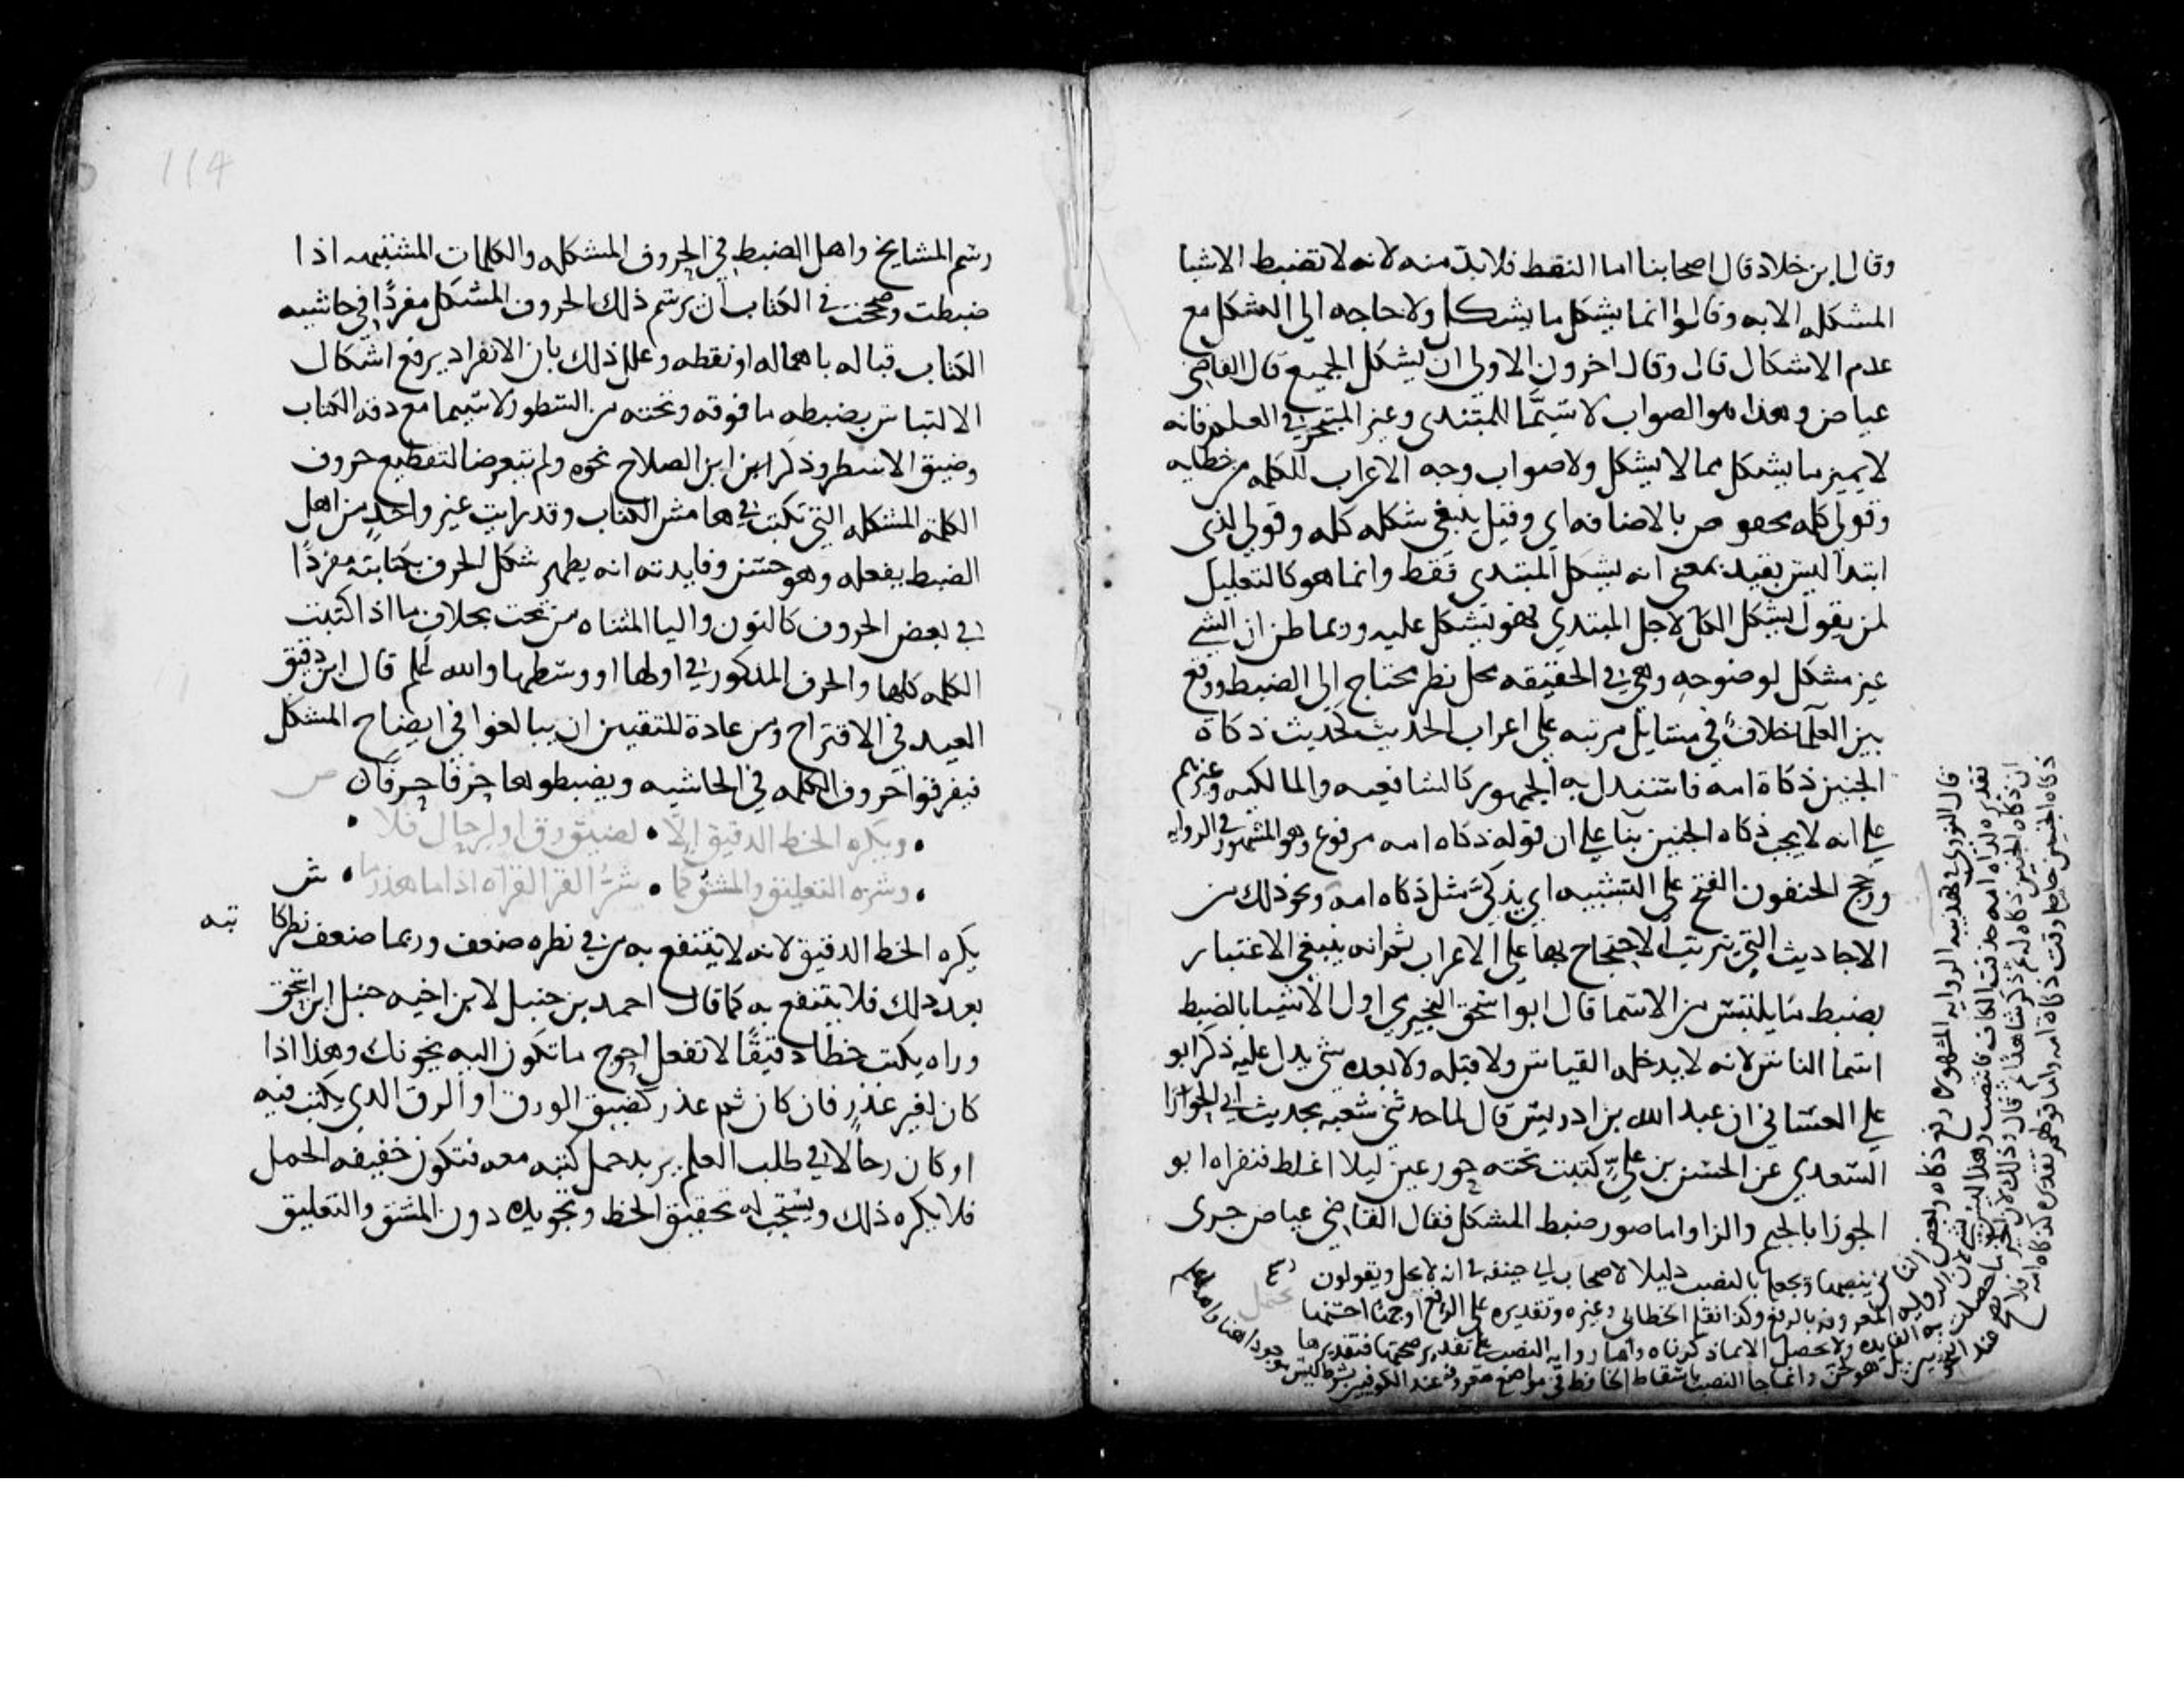 وقال ابن خلاد قال اصحابنا اما النقط فلا بدّ منه لانه لا تضبط الاشيا
المشكله الا به وقالوا انما يشكل ما يشكل ولا حاجه الى الشكل مع
عدم الاشكال قال وقال اخرون الاولى ان يشكل الجميع قال القاضي
عياض وهذا هو الصواب لا سيّما للمبتدى وغير المتبحر في العلم فانه
لا يميز ما يشكل مما لا يشكل ولا صواب وجه الاعراب للكلمه من خطايه
وقولي كله مخفوض بالاضافه اي وقيل ينبغي شكله كله وقولي لذي
ابتدا ليس بقيد بمعنى انه يشكل للمبتدي فقط وانما هو كالتعليل
لمن يقول يشكل الكل لاجل المبتدي فهو يشكل عليه وربما ظن ان الشي
غير مشكل لوضوحه وهي في الحقيقه محل نظر محتاج الى الضبط ووقع
بين العلما خلاف في مسايل مرتبه على اعراب الحديث كحديث ذكاة
الجنين ذكاة امه فاستدل به الجمهور كالشافعيه والمالكيه وغيرهم
على انه لا يجب ذكاه الجنين بنا على ان قوله ذكاه امه مرفوع وهو المشهور في الروايه
ورجح الحنفيون الفتح على التشبيه اي يذكى مثل ذكاه امه ونحو ذلك من
الاحاديث التي يترتب الاحتجاج بها على الاعراب ثم انه ينبغي الاعتبار
بضبط ما يلتبس من الاسما قال ابو اسحق النجيرمي اولى الاشيا بالضبط
اسما الناس لانه لا يدخله القياس ولا قبله ولا بعده شي يدل عليه ذكر ابو
علي الغساني ان عبد الله بن ادريس قال لما حدثني شعبه بحديث ابي الحورا
السعدي عن الحسن بن علي كتبت تحته حور عين ليلا اغلط فنقراه ابو
الجوزا بالجيم والزا واما صور ضبط المشكل فقال القاضي عياض جرى
قال النووي في تهذيبه الروايه المشهوره رفع ذكاه وبعض الناس ينصبها ويجعلها بالنصب دليلا لاصحاب ابي حنيفه في انه لا يحل ويقولون
رسم المشايخ واهل الضبط في الحروف المشكله والكلمات المشتبهه اذا
ضبطت وصححت في الكتاب ان يرسم ذلك الحروف المشكل مفردًا في حاشيه
الكتاب قباله باهماله او نقطه وعلل ذلك بان الانفراد يرفع اشكال
الالتباس بضبطه ما فوقه وتحته من السطور لا سيما مع دقه الكتاب
وضيق الاسطر وذكر ابن الصلاح نحوه ولم يتعرضا لتقطيع حروف
الكلمة المشكله التي تكتب في هامش الكتاب وقد رايت غير واحدٍ من اهل
الضبط يفعله وهو حسن وفايدته انه يظهر شكل الحرف بكتابته مفردًا
في بعض الحروف كالنون واليا المثناه من تحت بخلاف ما اذا كتبت
الكلمه كلها والحرف المذكور في اولها او وسطها والله اعلم قال ابن دقيق
العيد في الاقتراح ومن عادة المتقنين ان يبالغوا في ايضاح المشكل
فيفرقوا حروف الكلمه في الحاشيه ويضبطوها حرفًا حرفًا ص
ويكره الخط الدقيق الّا • لضيق رق او لرحال فلا •
وشره التعليق والمشق كما • شرّ القراة اذا ما هذرما • ش
يكره الخط الدقيق لانه لا ينتفع به من في نظره ضعف وربما ضعف نظر كاتبه
بعد ذلك فلا ينتفع به كما قال احمد بن حنبل لابن اخيه حنبل ابن اسحق
وراه يكتب خطا دقيقًا لا تفعل احوج ما تكون اليه يخونك وهذا اذا
كان لغير عذر فان كان ثم عذر كضيق الورق او الرق الذي يكتب فيه
او كان رحالا في طلب العلم يريد حمل كتبه معه فتكون خفيفه الحمل
فلا يكره ذلك ويستحب له تحقيق الخط وتجويده دون المشق والتعليق
114